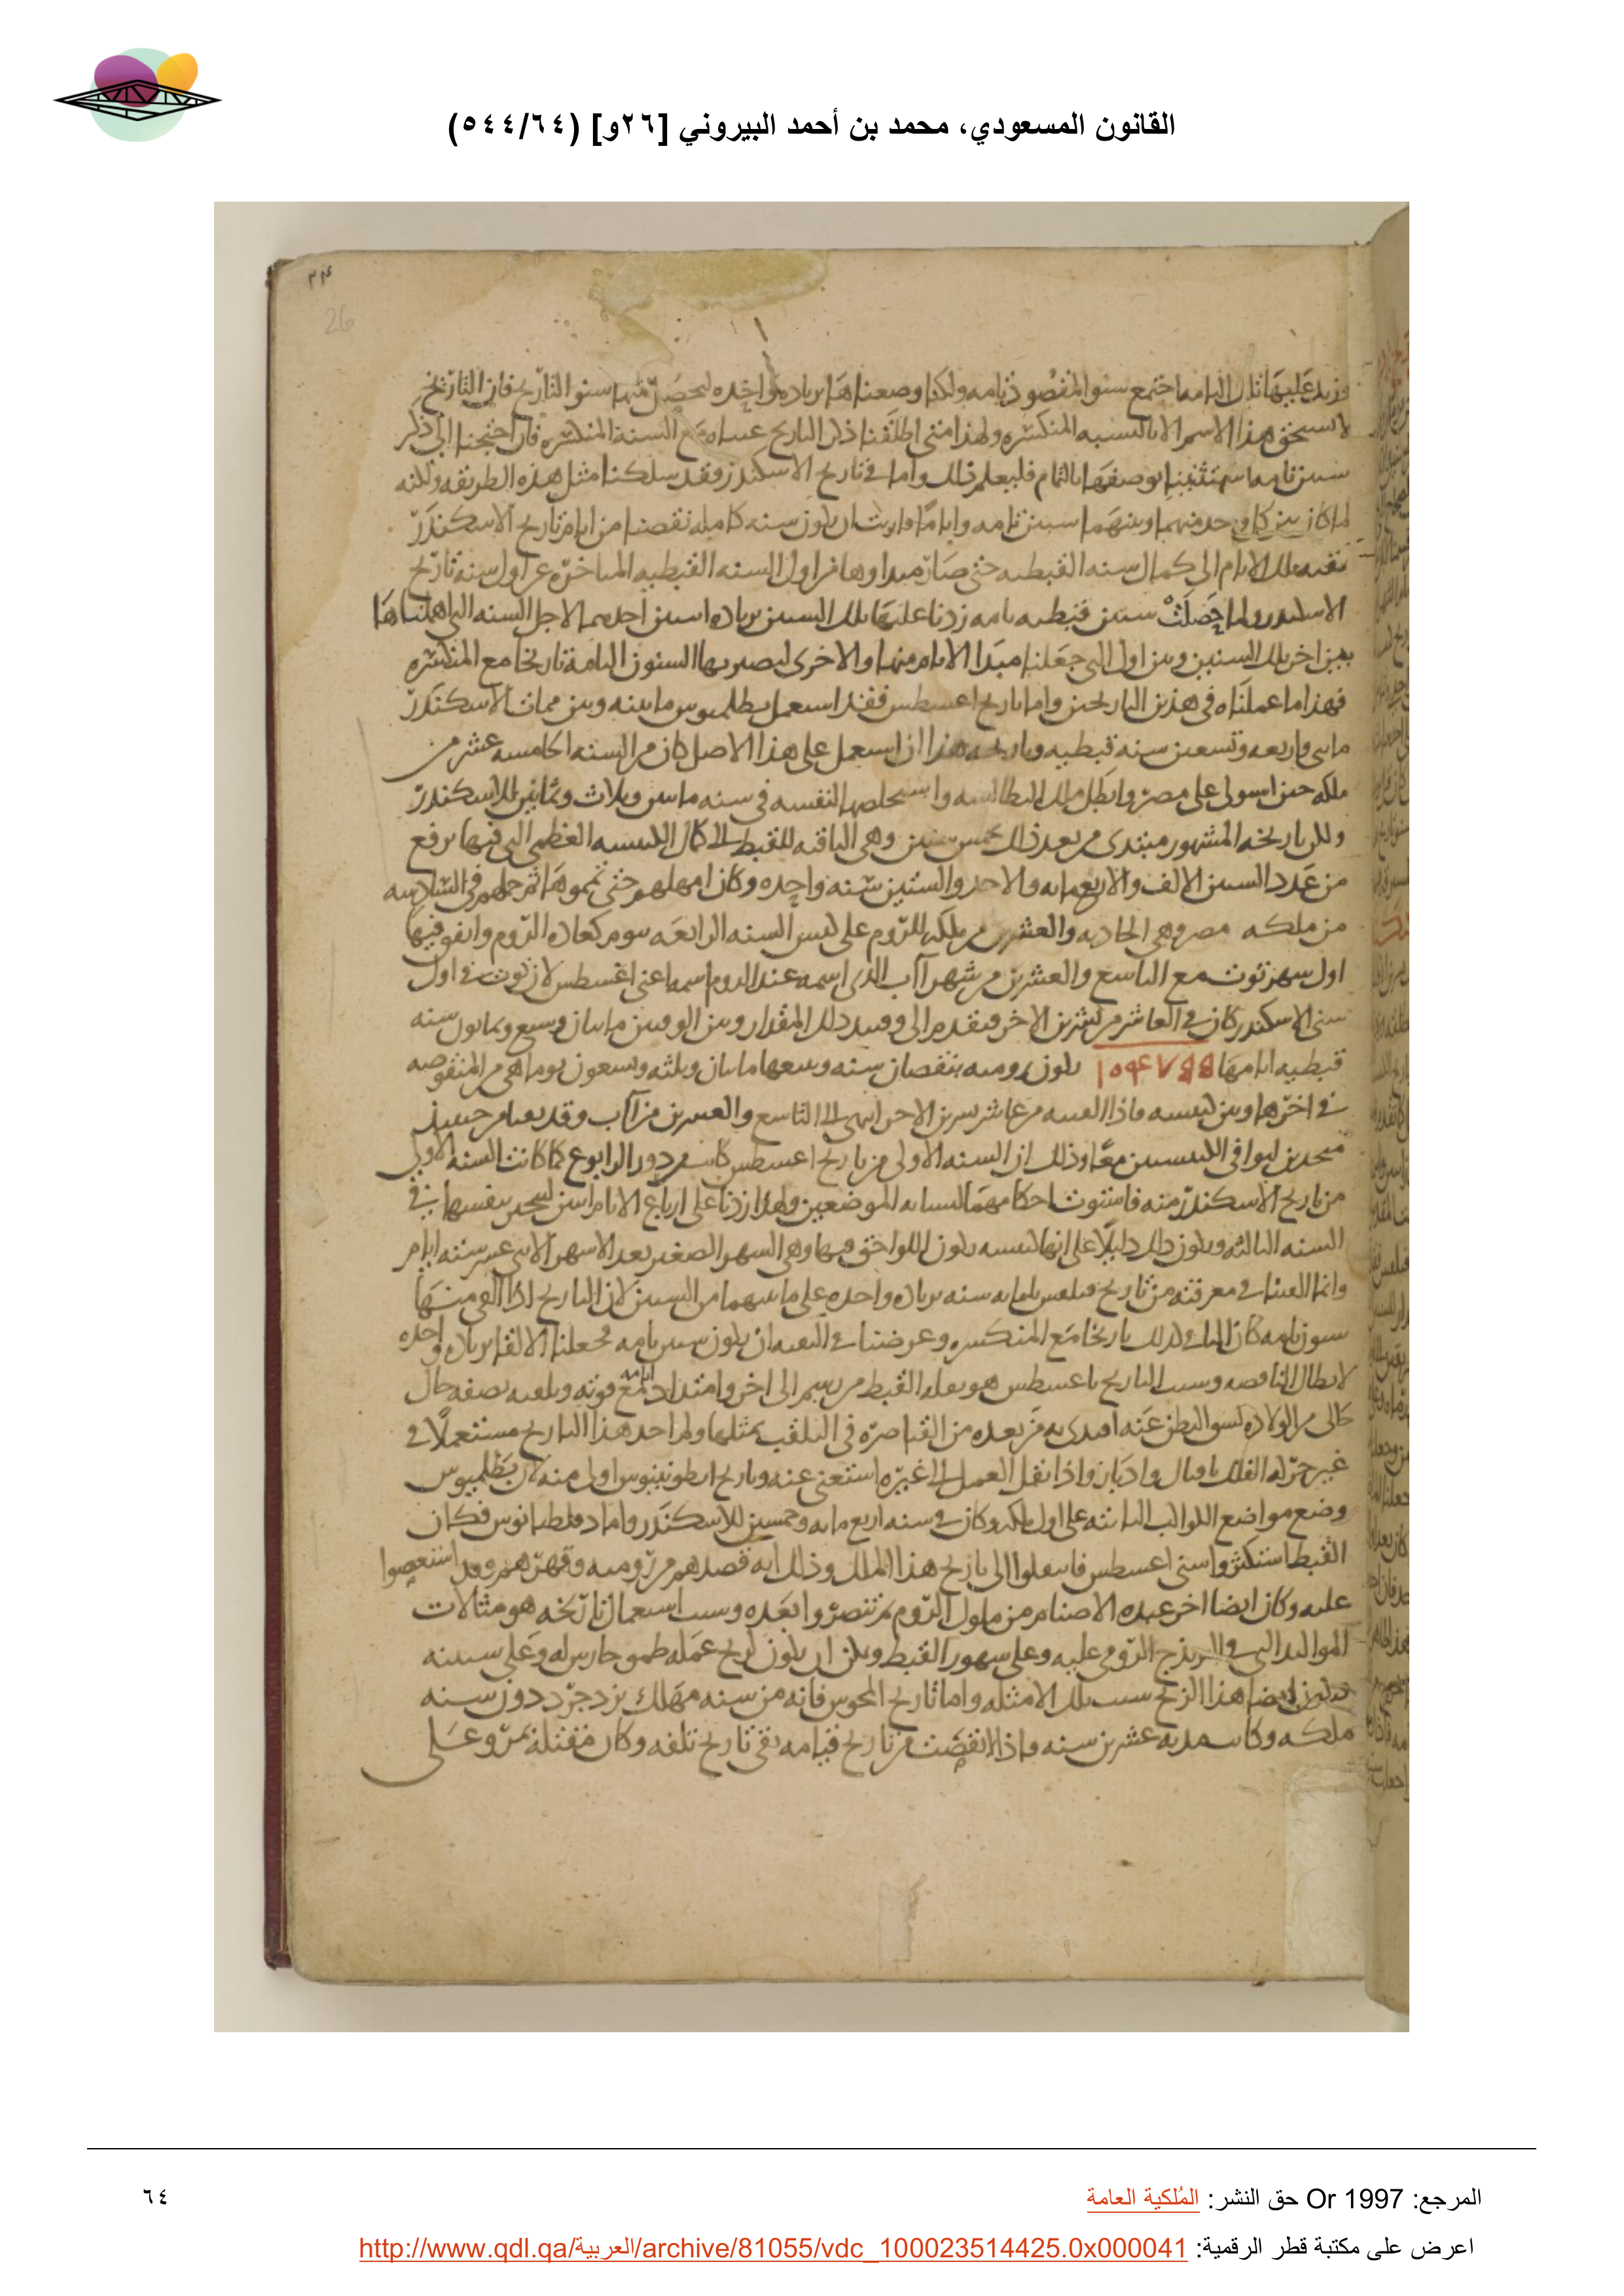 القانون المسعودي، محمد بن أحمد البيروني [٢٦و] (٥٤٤/٦٤)
26
وزيد عليها تلك التامه اجتمع سنو المقصود تامه ولكنا وضعناها بزياده واحده ليحصل منها سنو التاريخ فان التاريخ
لا يستحق هذا الاسم الا بالسنه المنكسره ولهذا متى اطلقنا ذكر التاريخ عنيناه مع السنة المنكسره فان احتجنا الى ذكر
سنين تامه استثنينا بوصفها بالتمام فليعلم ذلك واما في تاريخ الاسكندر فقد سلكنا مثل هذه الطريقه ولكنه
لما كان بين كل واحد منهما وبينهما سنين تامه واياما واريد ان يكون سنه كامله نقصنا من ايام تاريخ الاسكندر
بقيه تلك الايام الى كمال سنه القبطيه حتى صار مبداوها من اول السنه القبطيه المتاخره عن اول سنه تاريخ
الاسكندر ولما حصلت سنين قبطيه تامه زدنا عليها تلك السنين بزياده اسنين احديهما لاجل السنه التي اهملناها
بين اخر تلك السنين وبين اول التي جعلنا مبدا الايام منها والاخرى ليصير بها السنون التامة تاريخا مع المنكسره
فهذا ما عملناه في هذين التاريخين واما تاريخ اغسطس فقد استعمل بطلميوس ما بينه وبين ممات الاسكندر
مايتي واربعه وتسعين سنه قبطيه وتاريخه هذا ان استعمل على هذا الاصل كان من السنه الخامسه عشر من
ملكه حين استولى على مصر وابطل ملك البطالسه واستخلصها لنفسه في سنه مايتين وثلاث وثمانين للاسكندر
ولكن تاريخه المشهور مبتدى من بعد ذلك بخمس سنين وهي الباقيه للقبط الى كمال الكبيسه العظمى التي فيها يرفع
من عدد السنين الالف والاربعمايه والاحد والستين سنه واحده وكان امهلهم حتى تمموها ثم حملهم في السادسه
من ملكه مصر وهي الحاديه والعشرين من ملكه للروم على كبس السنه الرابعه بيوم كعادة الروم واتفق فيها
اول شهر توت مع التاسع والعشرين من شهر آاب الذي اسمه عند الروم اسمه اعني اغسطس لان توت في اول
سني الاسكندر كان في العاشر من تشرين الاخر فتقدم الى وقتيذ ذلك المقدار وبين الوقتين مايتان وسبع وثمانون سنه
قبطيه ايامها يكون روميه بنقصان سنه ومعها مايتان وثلثه وتسعون يوما هي من المنقوصه
في اخرها وبين كبيسه فاذا القيت من عاشر تشرين الاخر انتهى الى التاسع والعشرين من آاب وقد بقيا من حينيذ
متحدين ليوافق الكبيستين معا وذلك ان السنه الاولى من تاريخ اغسطس كانت من دور الرابوع كما كانت السنه الاولى
من تاريخ الاسكندر منه فاستوت احكامهما لتشابه الموضعين ولهذا زدنا على ارباع الايام اسنين لينجبر بنفسها في
السنه الثالثه ويكون ذلك دليلا على انها كبيسه يكون اللواحق فيها وهي الشهر الصغير بعد الاشهر الاثني عشر سته ايام
وانما القينا في معرفته من تاريخ فيلبس ثلثمايه سنه بزياده واحده على ما بينهما من السنين لان التاريخ اذا القي منها
سنون تامه كان الباقي كذلك تاريخا مع المنكسره وغرضنا في البقيه ان يكون سنين تامه فجعلنا الالقا بزياده واحده
لابطال الناقصه وسبب التاريخ باغسطس هو نقله القبط من رسم الى اخر وامتداد ايامه مع قوته وتلقبه بصفه حال
كالى من الولاده كشق البطن عنه اقتدى به من بعده من القياصره في التلقب بمثلها ولم اجد هذا التاريخ مستعملا في
غير حركه الفلك باقبال وادبار واذا نقل العمل الى غيره استغنى عنه وتاريخ انطونينوس اولى منه لان بطلميوس
وضع مواضع الكواكب الثابته على اول ملكه وكان في سنه اربع مايه وخمسين للاسكندر واما دقلطيانوس فكان
القبط استكثروا سني اغسطس فانتقلوا الى تاريخ هذا الملك وذلك انه قصدهم من روميه وقهرهم وقد استعصوا
عليه وكان ايضا اخر عبده الاصنام من ملوك الروم ثم تنصروا بعده وسبب استعمال تاريخه هو مثالات
المواليد التي في البزيذج الرومي عليه وعلى شهور القبط ويمكن ان يكون لزيج عمله طمو حارس له وعلى سنينه
هذا الزيج بسبب تلك الامثله واما تاريخ المجوس فانه من سنه مهلك يزدجرد دون سنه
ملكه وكانت مدته عشرين سنه فاذا انقضت من تاريخ قيامه بقي تاريخ تلفه وكان مقتله بمرو على
المرجع: Or 1997 حق النشر: المُلكية العامة
٦٤
اعرض على مكتبة قطر الرقمية: http://www.qdl.qa/العربية/archive/81055/vdc_100023514425.0x000041